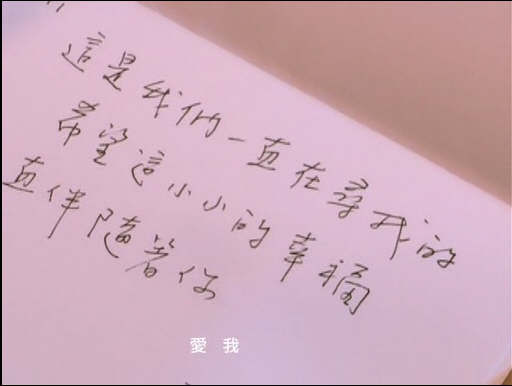 這是我們一直在尋找的
希望這小小的幸福
直伴隨著你
愛 我